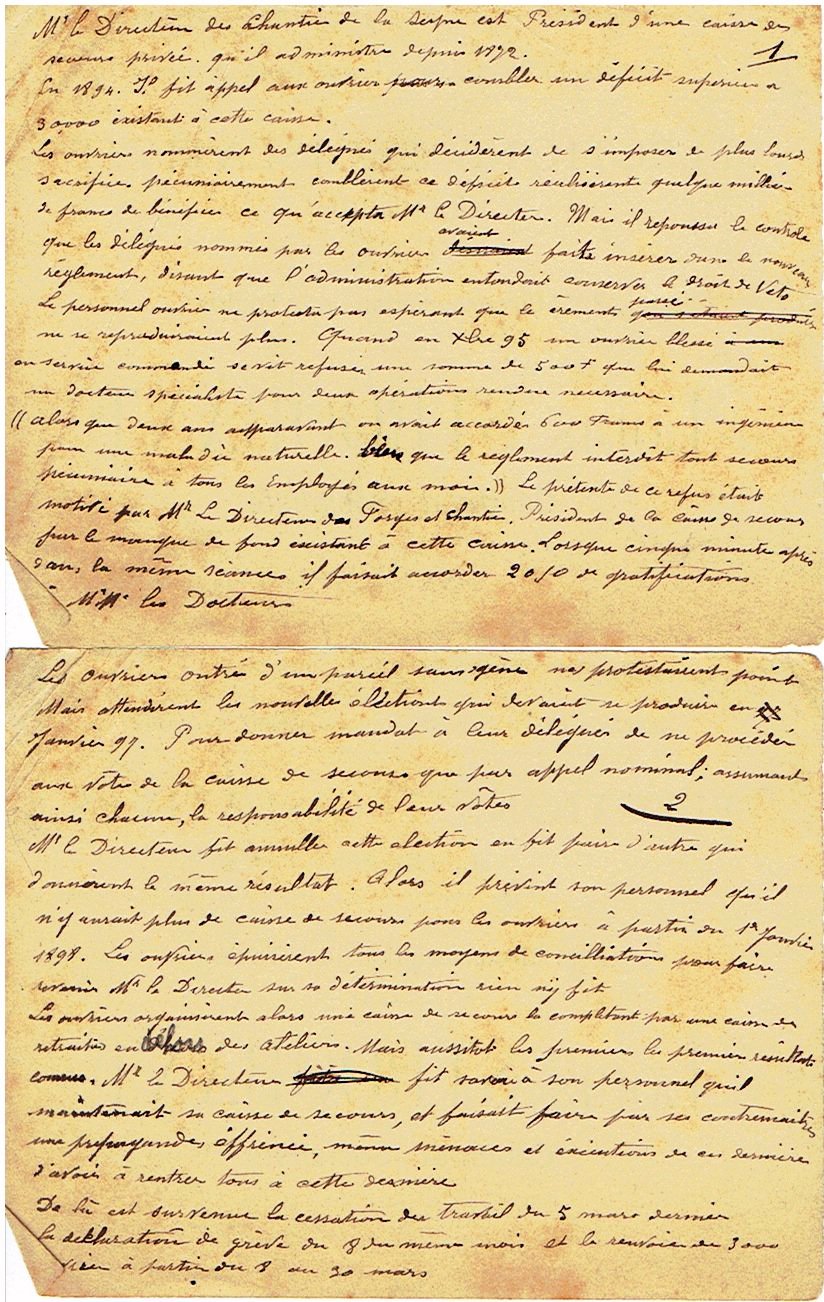 Mr le Directeur des chantier de la Seyne est Président d'une caisse de
secours privée. qu'il administre depuis 1892.
1
En 1894. Il fit appel aux ouvrier pour combler un déficit superieur a
30,000 existant à cette caisse.
Les ouvriers nommèrent des délégués qui décidèrent de s'imposer de plus lourds
sacrifices pécuniairement comblèrent ce déficit réalisèrent quelque millier
de francs de bénéfice ce qu'accepta Mr le Directer. Mais il repoussa le controle
avaient
que les délégués nommés par les ouvrier faite insérer dans le nouveau
réglement, disant que l'administration entendait conserver le droit de Veto
passé
Le personnel ouvrier ne protesta pas espérant que le érements qui s'étaient produits
ne se reproduiraient plus. Quand en Xbre 95 un ouvrier blessé à un
en service commandé se vit refuser une somme de 500f que lui demandait
un docteur spécialiste pour deux opérations rendue necessaire.
(( alors que deux ans apparavant on avait accordés 600 Francs à un ingénieur
pour une maladie naturelle. bien que le réglement interdit tout secours
pécuniaire à tous les Employés aux mois.)) Le prétente de ce refus était
motivé par Mr Le Directeur des Forges et chantier. Président de la caisse de secours
par le manque de fond éxistant à cette caisse. Lorsque cinque minute après
dans la même séances il faisait accorder 20/0 de gratifications
à Mr Mr les Docteurs
Les ouvriers outrés d'un pareil sans gêne ne protestairent point
Mais attendirent les nouvelles éléctions qui devaient se produire en
Janvier 97. Pour donner mandat à leur délégués de ne procédér
aux vote de la caisse de secours que par appel nominal; assumant
ainsi chacun, la responsabilité de leur vôtes
2
Mr le Directeur fit annuller cette election en fit faire d'autre qui
donnèrent le même résultat. Alors il prévint son personnel qu'il
n'y aurait plus de caisse de secours pour les ouvriers à partir du 1er Janvier
1898. Les ouvriers épuisèrent tous les moyens de concilliation pour faire
revenir Mr le Directer sur sa détermination rien n'y fit
Les ouvriers organisèrent alors une caisse de secours la completant par une caisse de
retraites en dehors des ateliers. Mais aussitot les premiers les premier résultats
connus. Mr le Directeur fit savoir à son personnel qu'il
maintenait sa caisse de secours, et faisait faire par ses contremaitres
une propagandes éffrénée, même ménaces et éxécutions de ces derniers
d'avoir à rentrer tous à cette dernière
De là est survenue la cessation du travail du 5 mars dernier
la déclaration de grève du 8 du même mois et le renvoie de 3000
à partir du 8 au 30 mars